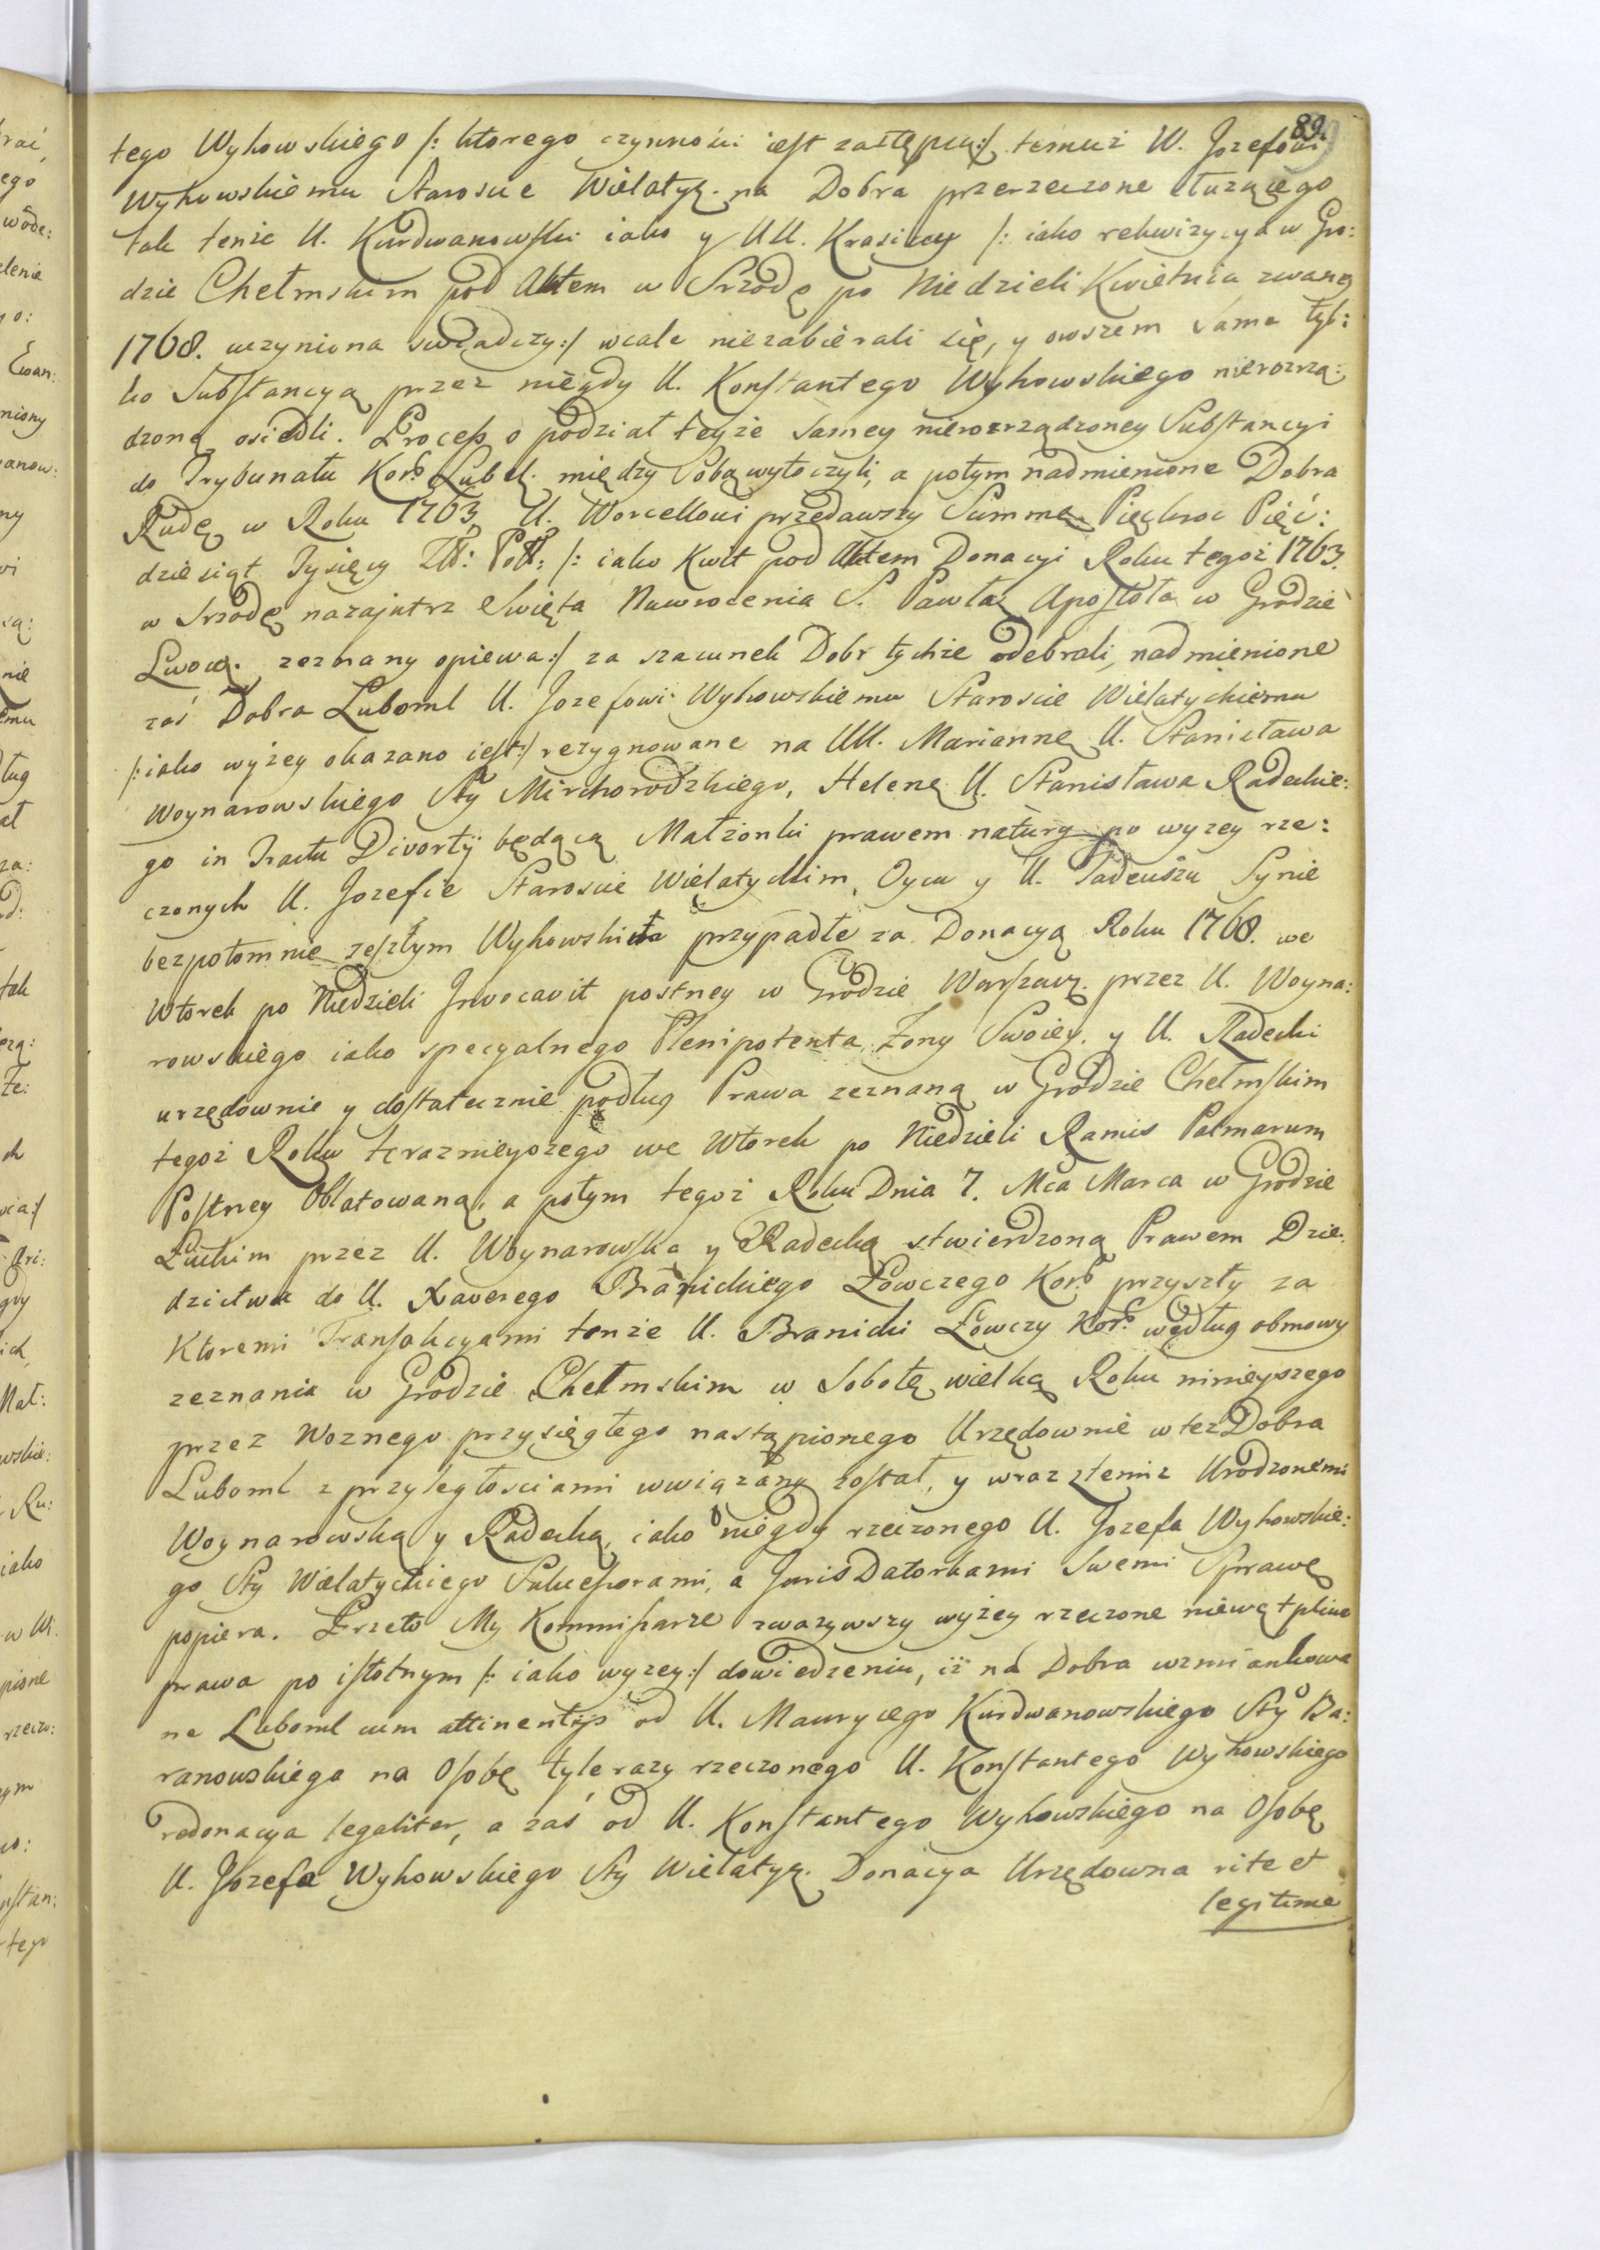 89.
tego Wyhowskiego /: ktorego czynnosci iest zastępcą :/ temuż W. Jozefowi
Wyhowskiemu Staroscie Wielatyc. na Dobra przerzeczone służącego
tak tenże U. Kurdwanowski iako y UU. Krasiccy /: iako rekwizycya w Gro:
dzie Chełmskim pod Aktem w Srzodę po Niedzieli Kwietnia zwaney
1768. uczyniona swiadczy :/ wcale niezabierali się, y owszem same tyl:
ko Substancyą przez niegdy U. Konstantego Wyhowskiego nierozrzą:
dzoną osiedli. Process o podział teyże samey nierozrządzoney Substancyi
do Trybunału Kor. Lubel. między Sobą wytoczyli, a potym nadmienione Dobra
Rudę w Roku 1763 U. Worcellowi przedawszy Summę Pięćkroc Pięć:
dziesiąt Tysięcy Złł: Poll: /: iako Kwit pod Aktem Donacyi Roku tegoż 1763.
w Srzodę nazajutrz Swięta Nawrocenia S. Pawła Apostoła w Grodzie
Lwow. zeznany opiewa :/ za szacunek Dobr tychże odebrali, nadmienione
zaś Dobra Luboml U. Jozefowi Wyhowskiemu Staroscie Wielatyckiemu
/: iako wyżey okazano iest :/ rezygnowane na UU. Mariannę U. Stanisława
Woynarowskiego Sty Mirchorodzkiego, Helenę U. Stanisława Radeckie:
go in Tractu Divortij będącą Małżonki prawem natury po wyzey rze:
czonych U. Jozefie Staroscie Wielatyckim, Oycu y U. Tadeuszu Synie
bezpotomnie zeszłym Wyhowskich przypadłe za Donacyą Roku 1768. we
Wtorek po Niedzieli Invocavit postney w Grodzie Warszaw. przez U. Woyna:
rowskiego iako specyalnego Plenipotenta Zony Swoiey, y U. Radecki
urzędownie y dostatecznie podług Prawa zeznaną w Grodzie Chełmskim
tegoż Roku terazmieyszego we Wtorek po Niedzieli Ramis Palmarum
Postney Oblatowaną, a potym tegoż Roku Dnia 7. Mca Marca w Grodzie
Łuckim przez U. Woynarowską y Radecką stwierdzoną Prawem Dzie:
dzictwa do U. Xaverego Branickiego Łowczego Kor. przyszły za
Ktoremi Transakcyami tenże U. Branicki Łowczy Kor. według obmowy
zeznania w Grodzie Chełmskim w Sobotę wielką Roku ninieyszego
przez Woznego przysięgłego nastąpionego Urzędownie w też Dobra
Luboml z przyległosciami wwiązany został, y wraz z temiż Urodzonemi
Woynarowską y Radecką, iako niegdy rzeczonego U. Jozefa Wyhowskie:
go Sty Wielatyckiego Sukcessorami, a JurisDatorkami Swemi Sprawę
popiera. Przeto My Kommissarze zważywszy wyżey rzeczone niewątpliwe
prawa po istotnym /: iako wyzey :/ dowiedzeniu, iż na Dobra wzmiankowa
ne Luboml cum attinentijs od U. Maurycego Kurdwanowskiego Sty Ba:
ranowskiego na Osobę tyle razy rzeczonego U. Konstantego Wyhowskiego
rodonacya legaliter, a zaś od U. Konstantego Wyhowskiego na Osobę
U. Jozefa Wyhowskiego Sty Wielatyc. Donacya Urzędowna rite et
legitime